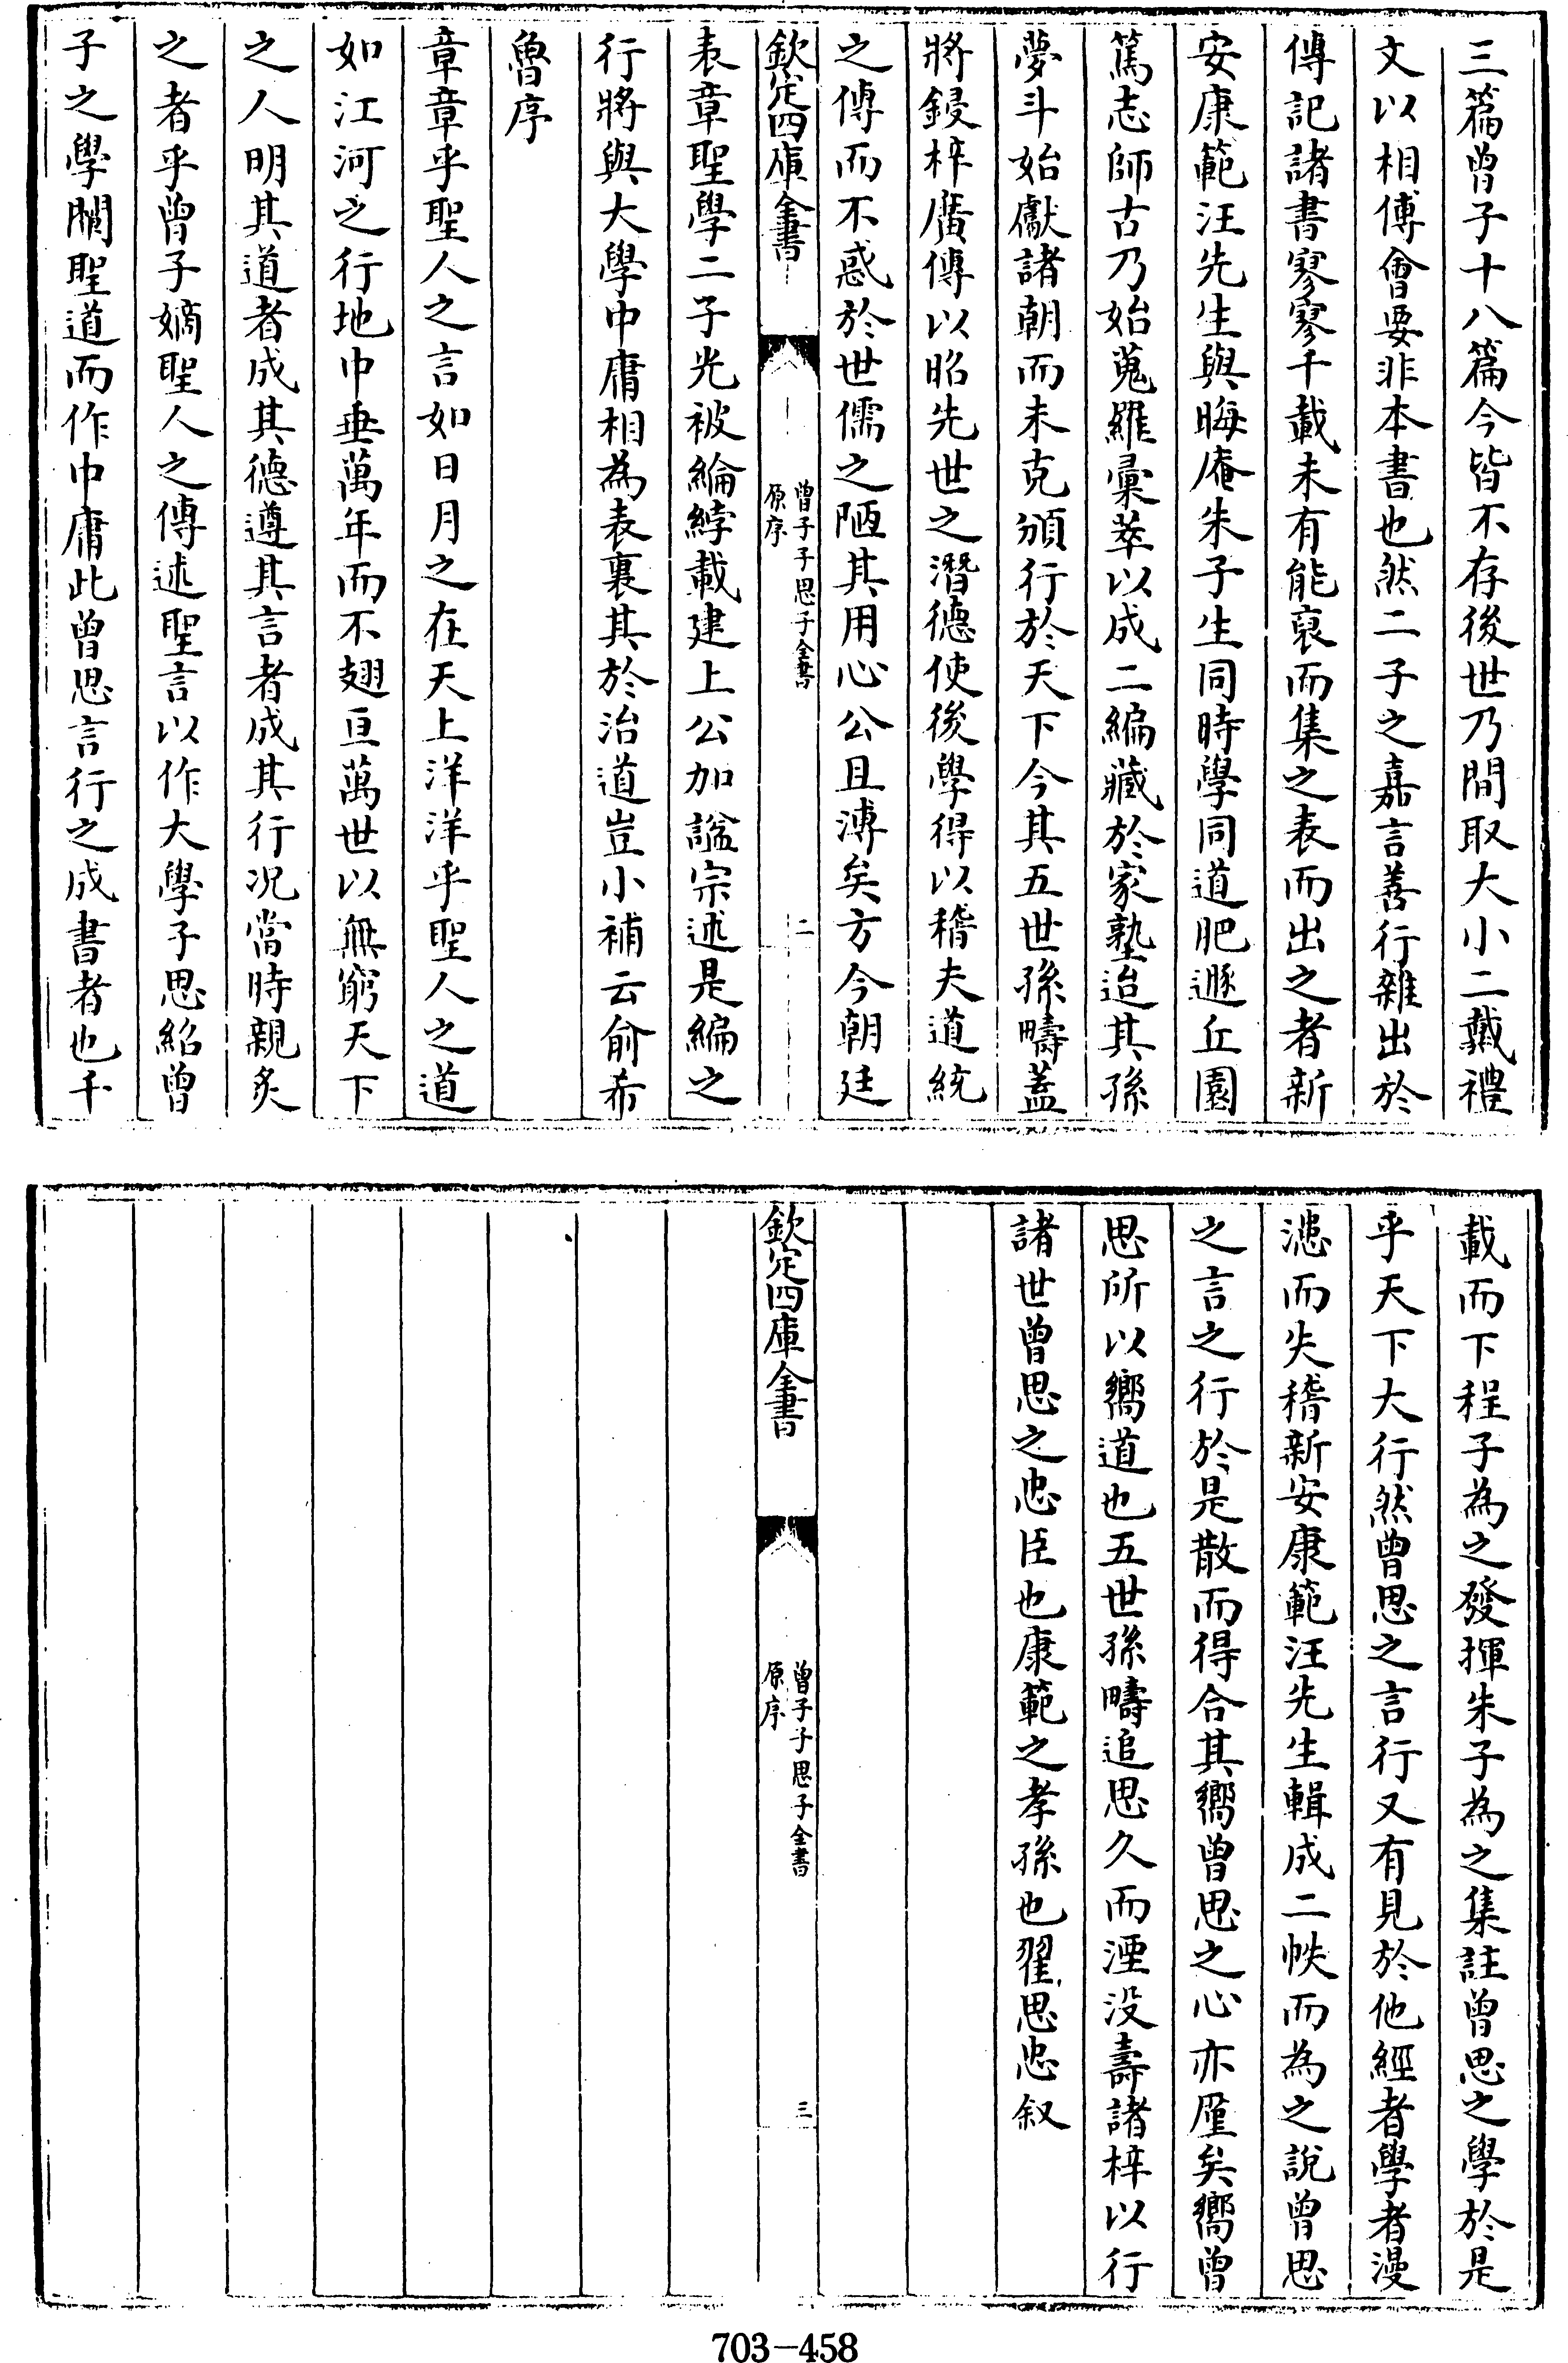 三篇曾子十八篇今皆不存後世乃間取大小二戴禮
文以相傅會要非本書也然二子之嘉言善行雜出於
傳記諸書寥寥千載未有能裒而集之表而出之者新
安康範汪先生與晦庵朱子生同時學同道肥遯丘園
篤志師古乃始蒐羅彙萃以成二編藏於家塾迨其孫
夢斗始獻諸朝而未克頒行於天下今其五世孫疇蓋
將鋟梓廣傳以昭先世之潛德使後學得以稽夫道統
之傳而不惑於世儒之陋其用心公且溥矣方今朝廷
欽定四庫全書
曾子子思子全書
原序
二
表章聖學二子光被綸綍載建上公加諡宗述是編之
行將與大學中庸相為表裏其於治道豈小補云俞希
魯序
章章乎聖人之言如日月之在天上洋洋乎聖人之道
如江河之行地中垂萬年而不翅亘萬世以無窮天下
之人明其道者成其德遵其言者成其行况當時親炙
之者乎曾子嫡聖人之傳述聖言以作大學子思紹曾
子之學闡聖道而作中庸此曾思言行之成書者也千
載而下程子為之發揮朱子為之集註曾思之學於是
乎天下大行然曾思之言行又有見於他經者學者漫
漶而失稽新安康範汪先生輯成二帙而為之說曾思
之言之行於是散而得合其嚮曾思之心亦厪矣嚮曾
思所以嚮道也五世孫疇追思久而湮没壽諸梓以行
諸世曾思之忠臣也康範之孝孫也翟思忠叙
欽定四庫全書
曾子子思子全書
原序
三
703-458